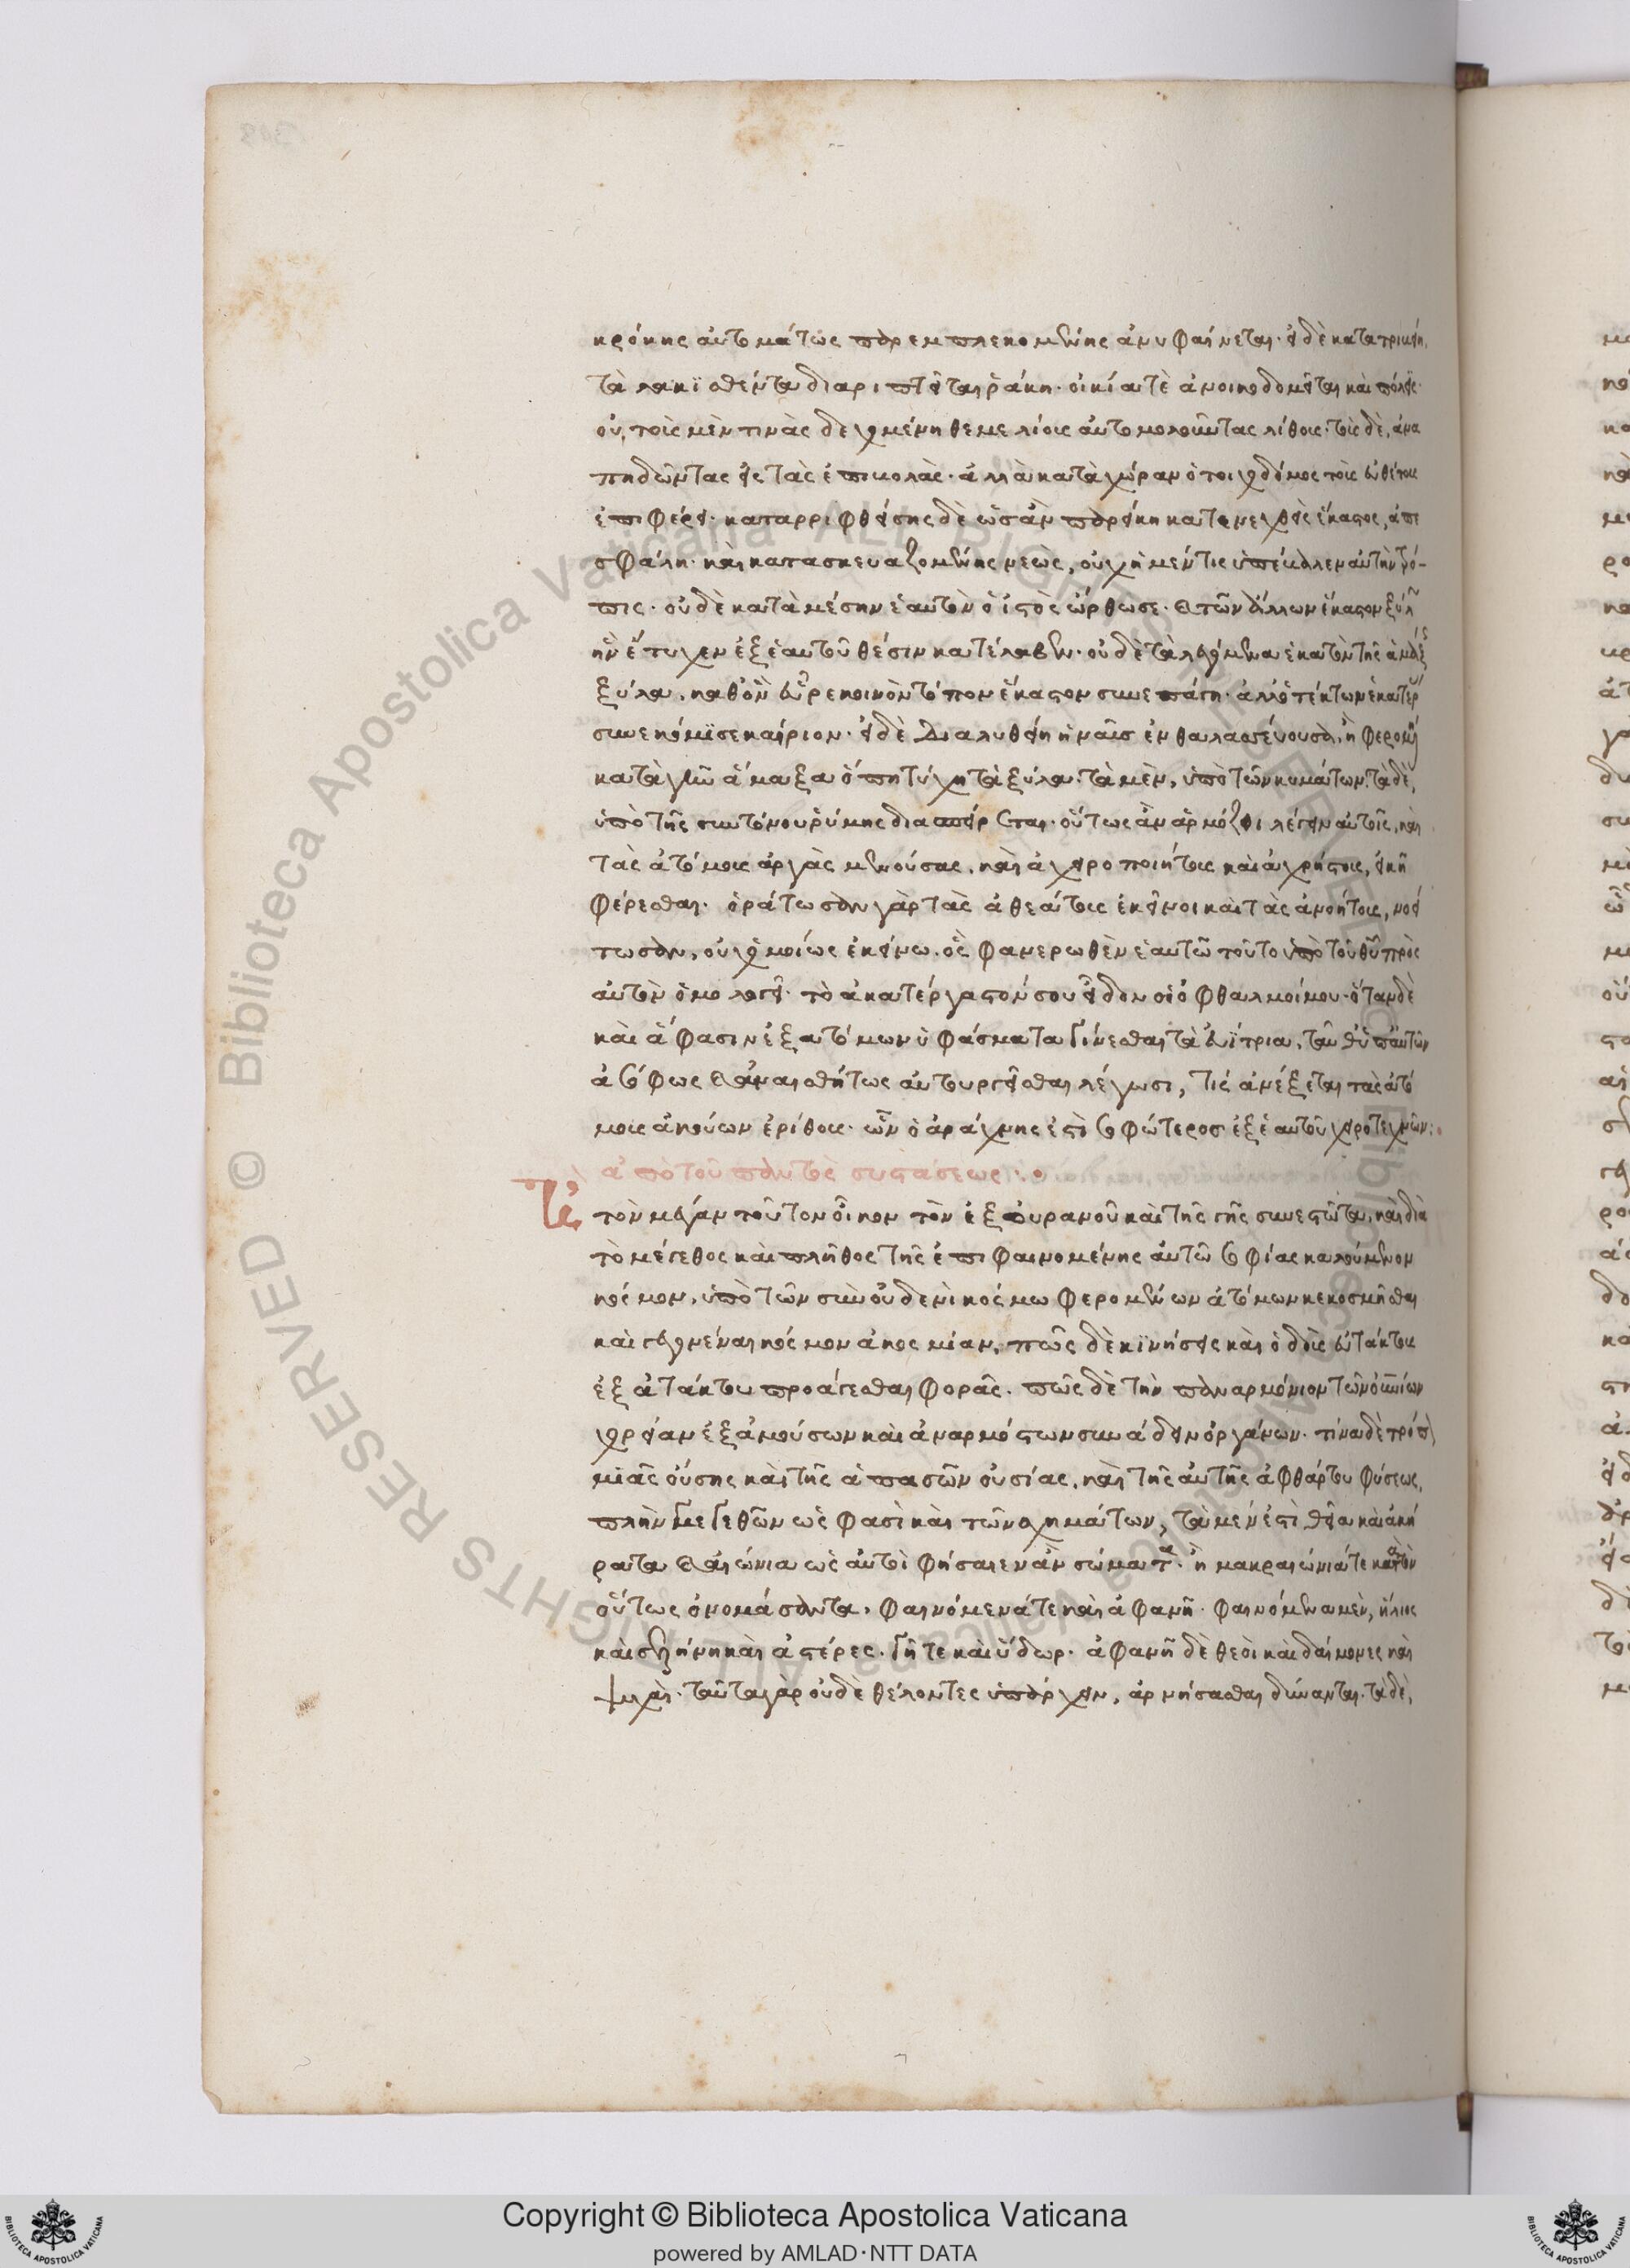 κρόκης αὐτομάτως παρεμπλεκομένης ἀνυφαίνεται· εἰ δὲ κατατριφείη,
τὰ λακισθέντα διαριπτεῖται ῥάκη· οἰκία τὲ ἀνοικοδομεῖται καὶ πόλις·
οὐ, τοῖς μὲν τινὰς δεχομένη θεμελίοις αὐτομολοῦντας λίθους· τοὺς δὲ, ἀνα
πηδῶντας εἰς τὰς ἐπιβολὰς· ἀλλὰ κατὰ χώραν ὁ τοιχοδόμος τοὺς εὐθέτους
ἐπιφέρει· καταρριφθείσης δὲ ὡς ἂν παρείκη κατενεχθεὶς ἕκαστος, ἀπε
σφάλη· καὶ κατασκευαζομένης νεὼς, οὐχ ἡ μέν τις ὑπέβαλεν αὑτὴν τρό-
πις· οὐδὲ κατὰ μέσην ἑαυτὸν ὁ ἱστὸς ὤρθωσε· καὶ τῶν ἄλλων ἕκαστον ξύλων
ἣν ἔτυχεν ἐξ ἑαυτοῦ θέσιν κατέλαβεν· οὐδὲ τὰ λεγόμενα ἑκατὸν τῆς ἁμάξης
ξύλα, καθ' ὃν εὗρε κοινὸν τόπον ἕκαστον συνεπάγη· ἀλλ' ὁ τέκτων ἑκατέρων
συνεκόμισε καίριον· εἰ δὲ διαλυθείη ἡ ναῦς ἐν θαλασσεύουσα, ἢ φερομένη
κατὰ γῆν ἅμαξα ὅπη τύχη τὰ ξύλα· τὰ μὲν, ὑπὸ τῶν κυμάτων· τὰ δὲ,
ὑπὸ τῆς συντόνου ῥύμης διασπείρεται· οὕτως ἂν ἁρμόζοι λέγειν αὐτοῖς, καὶ
τὰς ἀτόμους ἀργὰς μενούσας, καὶ ἀχειροποιήτους καὶ ἀχρήστους, εἰκῆ
φέρεσθαι· ὁράτωσαν γὰρ τὰς ἀθεάτους ἐκεῖνοι καὶ τὰς ἀνοήτους, νοεί
τωσαν, οὐχ ὁμοίως ἐκείνω· ὃς φανερωθὲν ἑαυτῶ τοῦτο ὑπὸ τοῦ θυ πρὸς
αὐτὸν ὁμολογεῖ· τὸ ἀκατέργαστόν σου εἶδον οἱ ὀφθαλμοί μου· ὅταν δὲ
καὶ ἅ φασιν ἐξ ἀτόμων ὑφάσματα γίνεσθαι τὰ εὐήτρια, ταῦθ' ὑπ' αὐτῶν
ἀσόφως καὶ ἀναισθήτως αὐτουργεῖσθαι λέγωσι, τίς ἀνέξεται τὰς ἀτό
μους ἀκούων ἐρίθους· ὧν ὁ ἀράχνης ἐστὶ σοφώτερος ἐξ ἑαυτοῦ χειροτεχνῶν:
ἀπὸ τοῦ παντὸς συστάσεως·
τὸν μέγαν τοῦτον οἶκον τὸν ἐξ οὐρανοῦ καὶ τῆς γῆς συνεστῶτα, καὶ διὰ
τὸ μέγεθος καὶ πλῆθος τῆς ἐπιφαινομένης αὐτῶ σοφίας καλούμενον
κόσμον, ὑπὸ τῶν σὺν οὐδενὶ κόσμω φερομένων ἀτόμων κεκοσμῆσθαι
καὶ γεγονέναι κόσμον ἀκοσμίαν, πῶς δὲ κινήσεις καὶ ὁδοὺς εὐτάκτους
ἐξ ἀτάκτου προάγεσθαι φορᾶς· πῶς δὲ τὴν παναρμόνιον τῶν οὐνίων
χορείαν ἐξ ἀμούσων καὶ ἀναρμόστων συνάδειν ὀργάνων· τίνα δὲ τρόπον
μιᾶς οὔσης καὶ τῆς ἁπασῶν οὐσίας, καὶ τῆς αὐτῆς ἀφθάρτου φύσεως,
πλὴν μεγεθῶν ὥς φασὶ καὶ τῶν σχημάτων, τὰ μέν ἐστι θεῖα καὶ ἀκή
ρατα καὶ αἰώνια ὡς αὐτοὶ φήσαιεν ἂν σώματα· ἢ μακραιώνιά τε κατὰ τὸν
οὕτως ὀνομάσαντα, φαινόμενά τε καὶ ἀφανῆ· φαινόμενα μὲν, ἥλιος
καὶ σελήνη καὶ ἀστέρες· γῆ τε καὶ ὕδωρ· ἀφανῆ δὲ θεοὶ καὶ δαίμονες καὶ
ψυχαί· ταῦτα γὰρ οὐδὲ θέλοντες ὑπάρχειν, ἀρνήσασθαι δύνανται· τὰ δὲ,
Copyright © Biblioteca Apostolica Vaticana
powered by AMLAD·NTT DATA